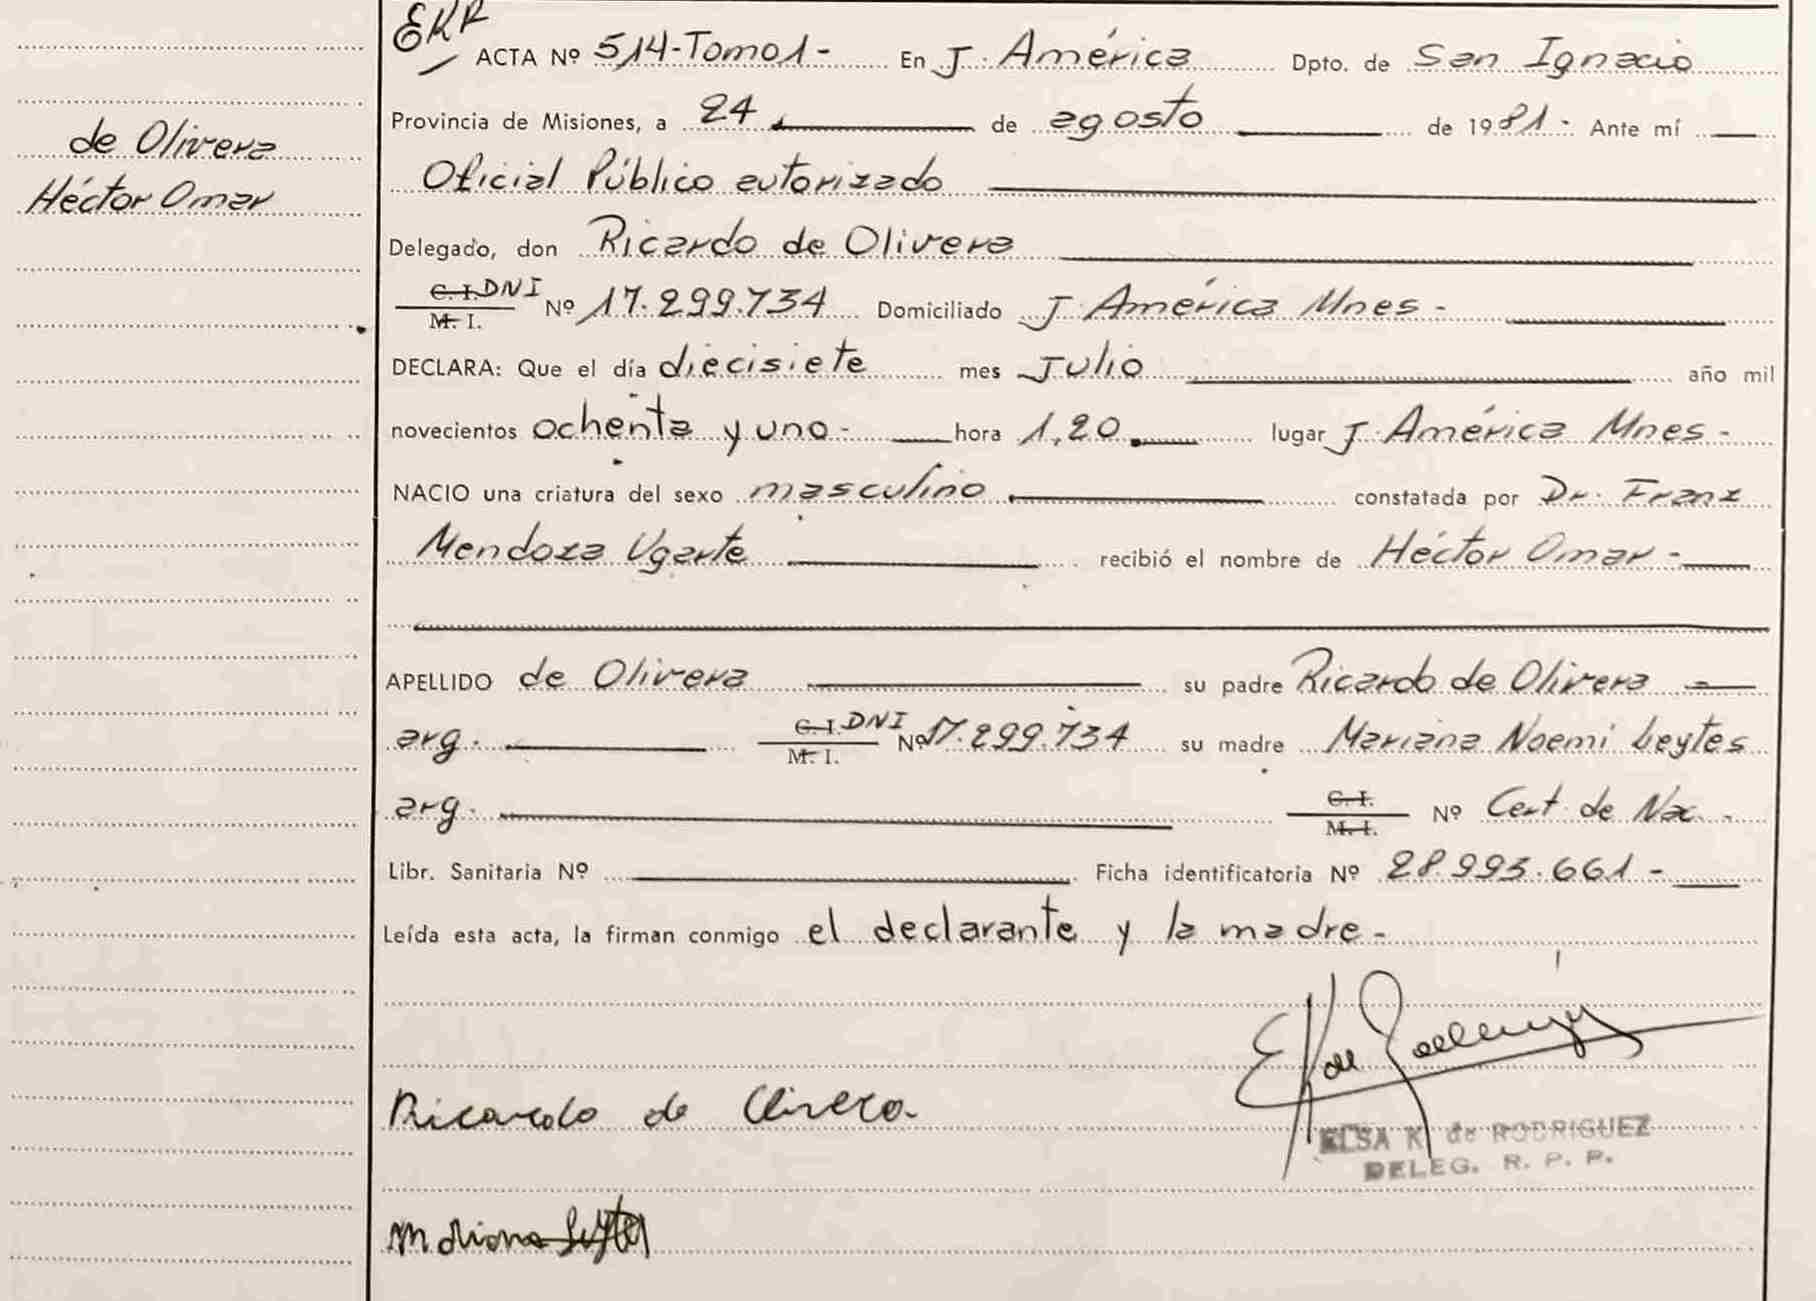 EKR
ACTA Nº 514-Tomo1- En J. América Dpto. de San Ignacio
Provincia de Misiones, a 24 de agosto de 1981- Ante mí
de Olivera
Héctor Omar
Oficial Público autorizado
Delegado, don Ricardo de Olivera
C. I. DNI
M. I.
Nº 17.299.734 Domiciliado J. América Mnes-
DECLARA: Que el día diecisiete mes Julio año mil
novecientos ochenta y uno- hora 1,20. lugar J. América Mnes-
NACIO una criatura del sexo masculino constatada por Dr. Franz
Mendoza Ugarte recibió el nombre de Héctor Omar-
APELLIDO de Olivera su padre Ricardo de Olivera
arg. C. I. DNI
M. I.
Nº 17.299.734 su madre Mariana Noemi Leytes
arg. C. I.
M. I.
Nº Cert. de Nac.-
Libr. Sanitaria Nº Ficha identificatoria Nº 28.993.661-
Leída esta acta, la firman conmigo el declarante y la madre-
Ricardo de Olivera
ELSA K de RODRIGUEZ
DELEG. R. P. P.
Mariana Leytes